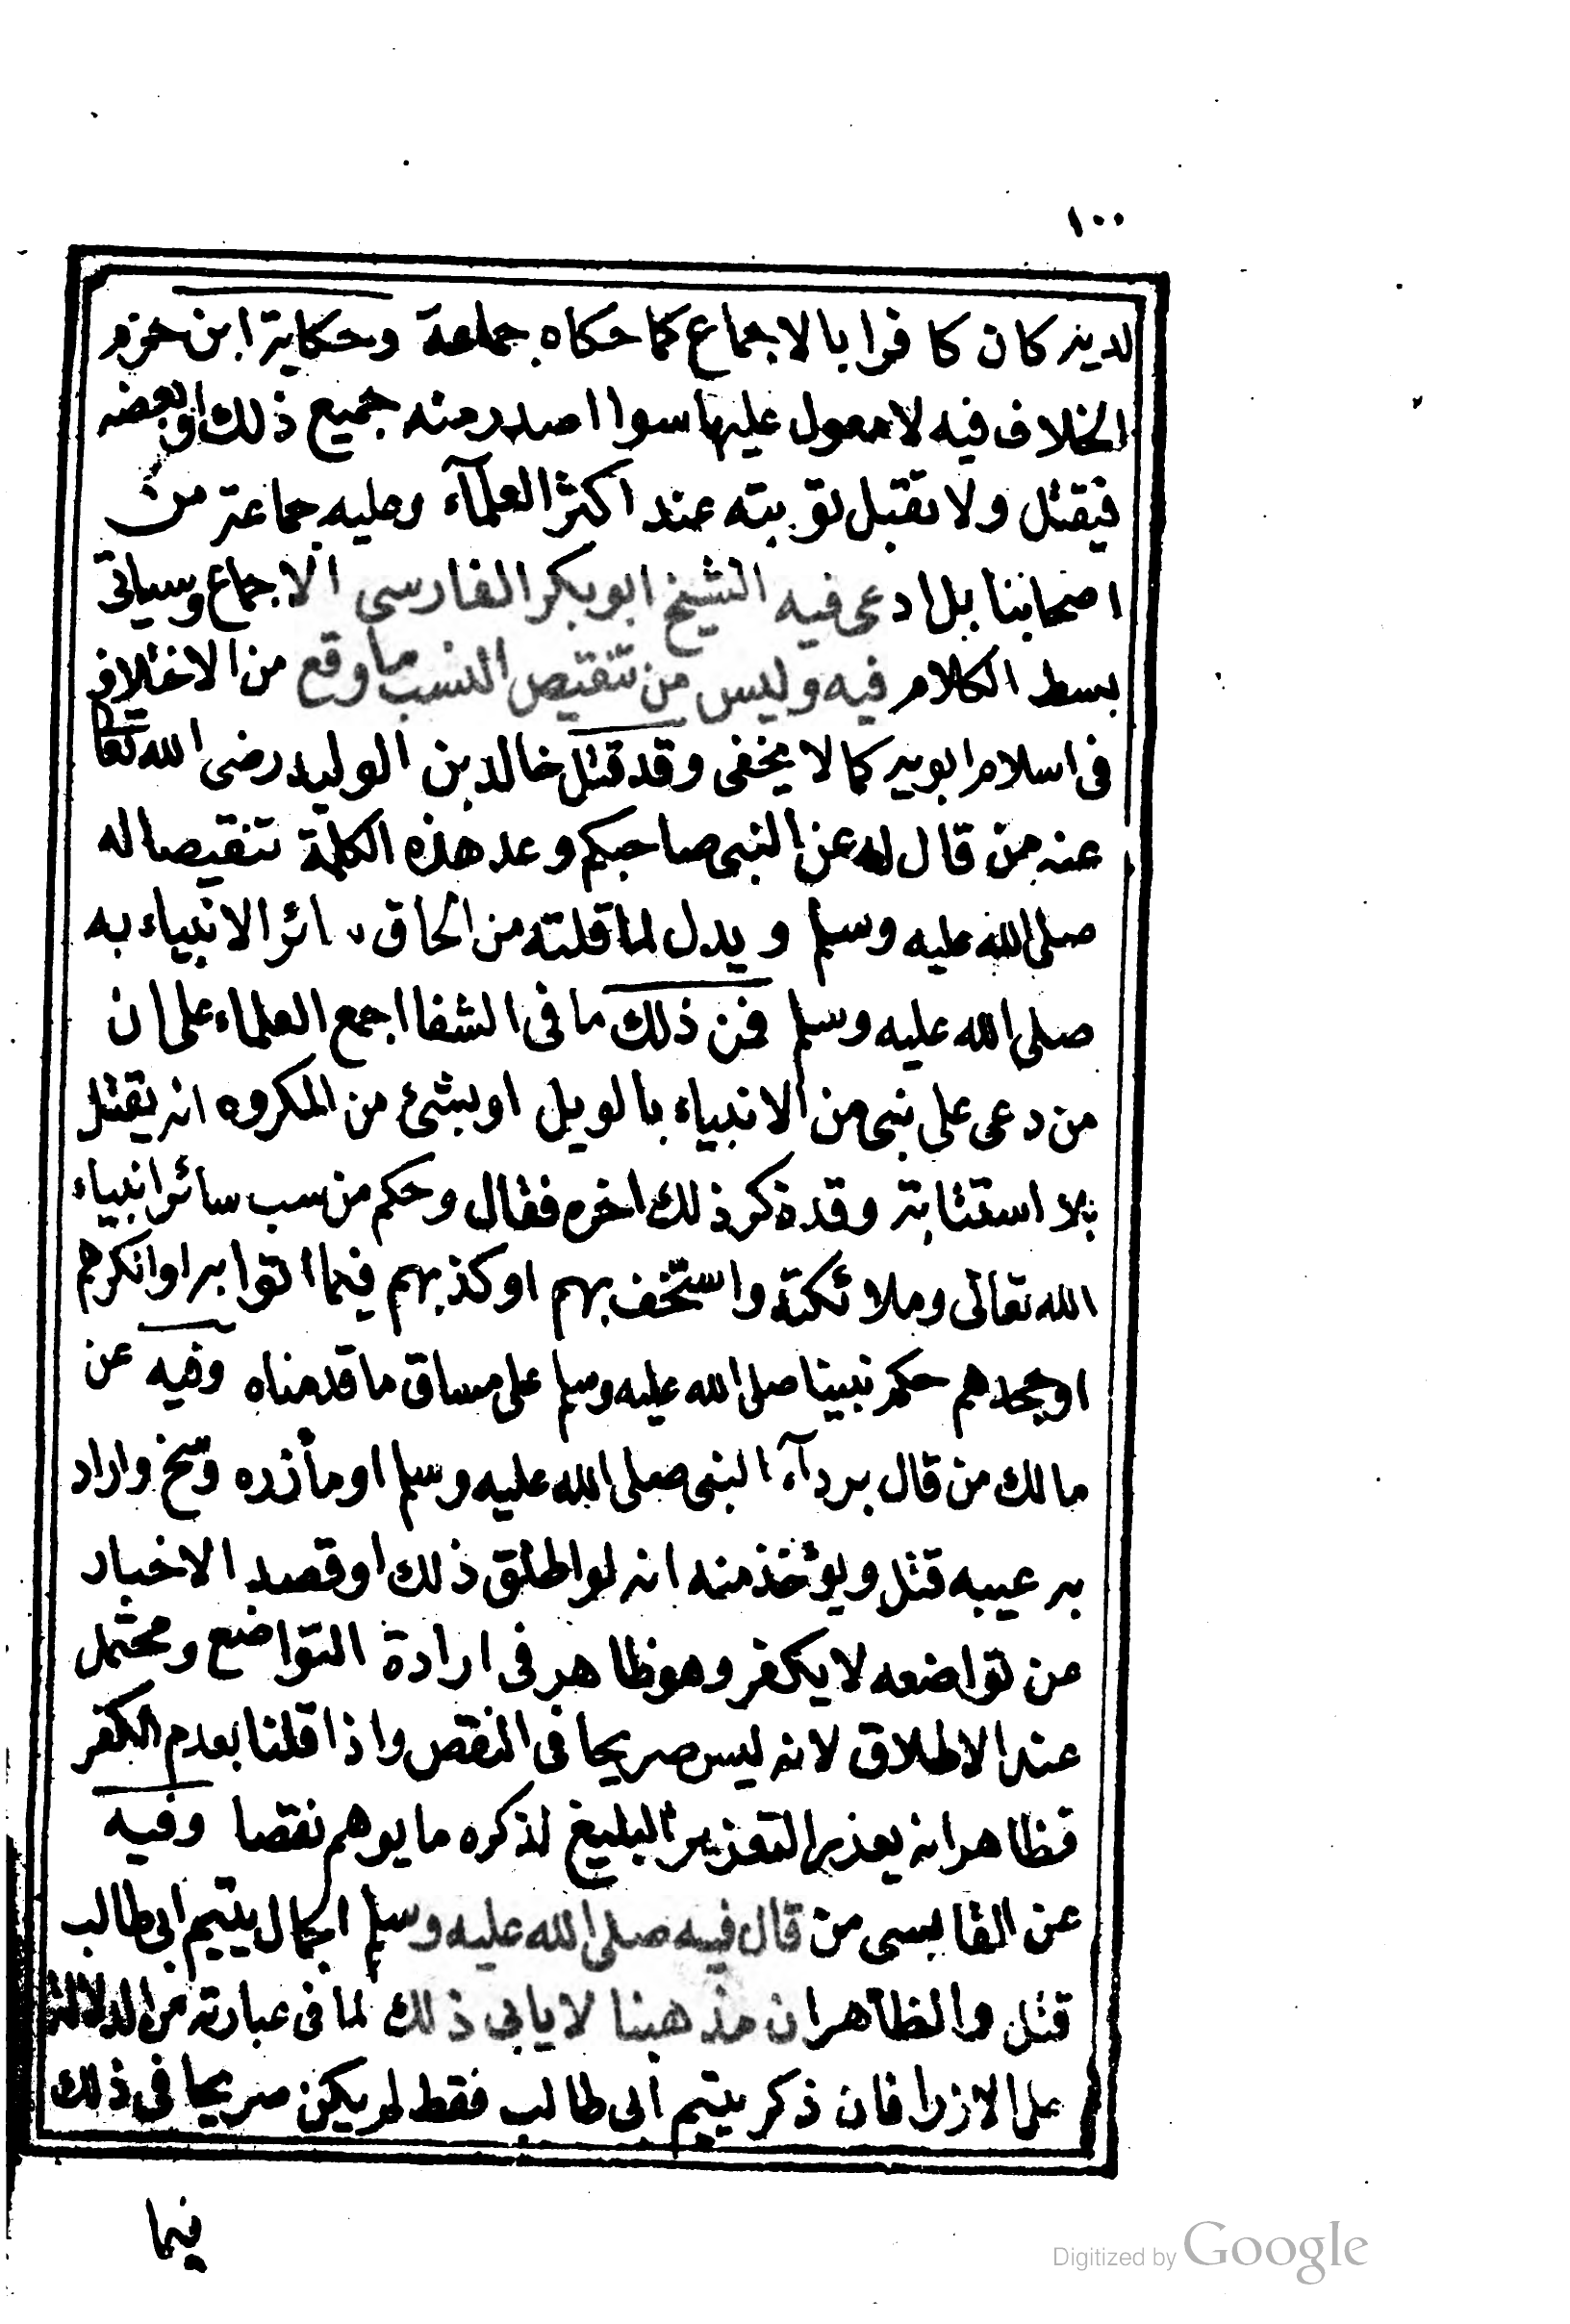 ١٠٠
لديه كان كافرا بالاجماع كما حكاه جماعة وحكاية ابن حزم
الخلاف فيه لا معول عليها سوا اصدر منه جميع ذلك او بعضه
فيقتل ولا تقبل توبته عند اكثر العلمآء وعليه جماعة من
اصحابنا بل ادعى فيه الشيخ ابو بكر الفارسى الاجماع وسياتى
بسط الكلام فيه وليس من تنقيص النسب ما وقع من الاختلاف
فى اسلام ابويه كما لا يخفى وقد قتل خالد بن الوليد رضى الله تعا
عنه من قال له عن النبى صاحبكم وعد هذه الكلمة تنقيصا له
صلى الله عليه وسلم ويدل لما قلته من الحاق سائر الانبياء به
صلى الله عليه وسلم فمن ذلك ما فى الشفا اجمع العلماء على ان
من دعى على نبى من الانبياء بالويل او بشئ من المكروه انه يقتل
بلا استتابة وقد ذكر ذلك اخره فقال وحكم من سب سائر انبياء
الله تعالى وملائكته واستخف بهم او كذبهم فيما اتوا به او انكرهم
او جحدهم حكم نبينا صلى الله عليه وسلم على مساق ما قدمناه وفيه عن
مالك من قال برداء النبى صلى الله عليه وسلم او مأزره وسخ واراد
به عيبه قتل ويؤخذ منه انه لو اطلق ذلك او قصد الاخبار
عن تواضعه لا يكفر وهو ظاهر فى ارادة التواضع ومحتمل
عند الاطلاق لانه ليس صريحا فى النقص واذا قلنا بعدم الكفر
فظاهر انه يعذر التعذير البليغ لذكره ما يوهم نقصا وفيه
عن القابسى من قال فيه صلى الله عليه وسلم الجمال يتيم ابى طالب
قتل والظاهر ان مذهبنا لا يابى ذلك لما فى عبارته من الدلالة
على الازرا فان ذكر يتيم ابى طالب فقط لم يكن صريحا فى ذلك
فيما
Digitized by Google